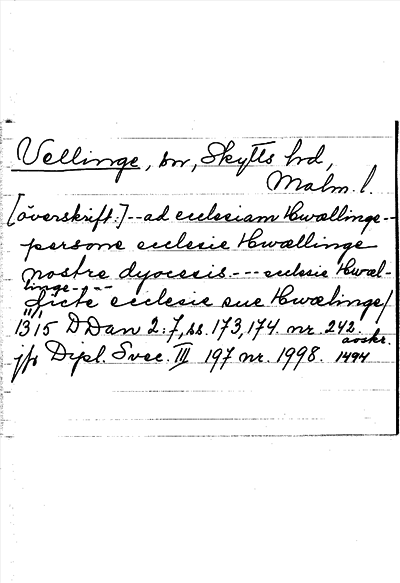 Vellinge, sn, Skytts hd,
Malm. l.
[överskrift:] -- ad ecclesiam Hwællinge --
persone ecclesie Hwællinge
nostre dyocesis --- ecclesie Hwæl-
linge ---
dicte ecclesie sue Hwælinge/
1315 11/1 DDan 2:7, ss. 173, 174. nr. 242.
avskr. 1494
jfr Dipl. Svec. III 197 nr. 1998.